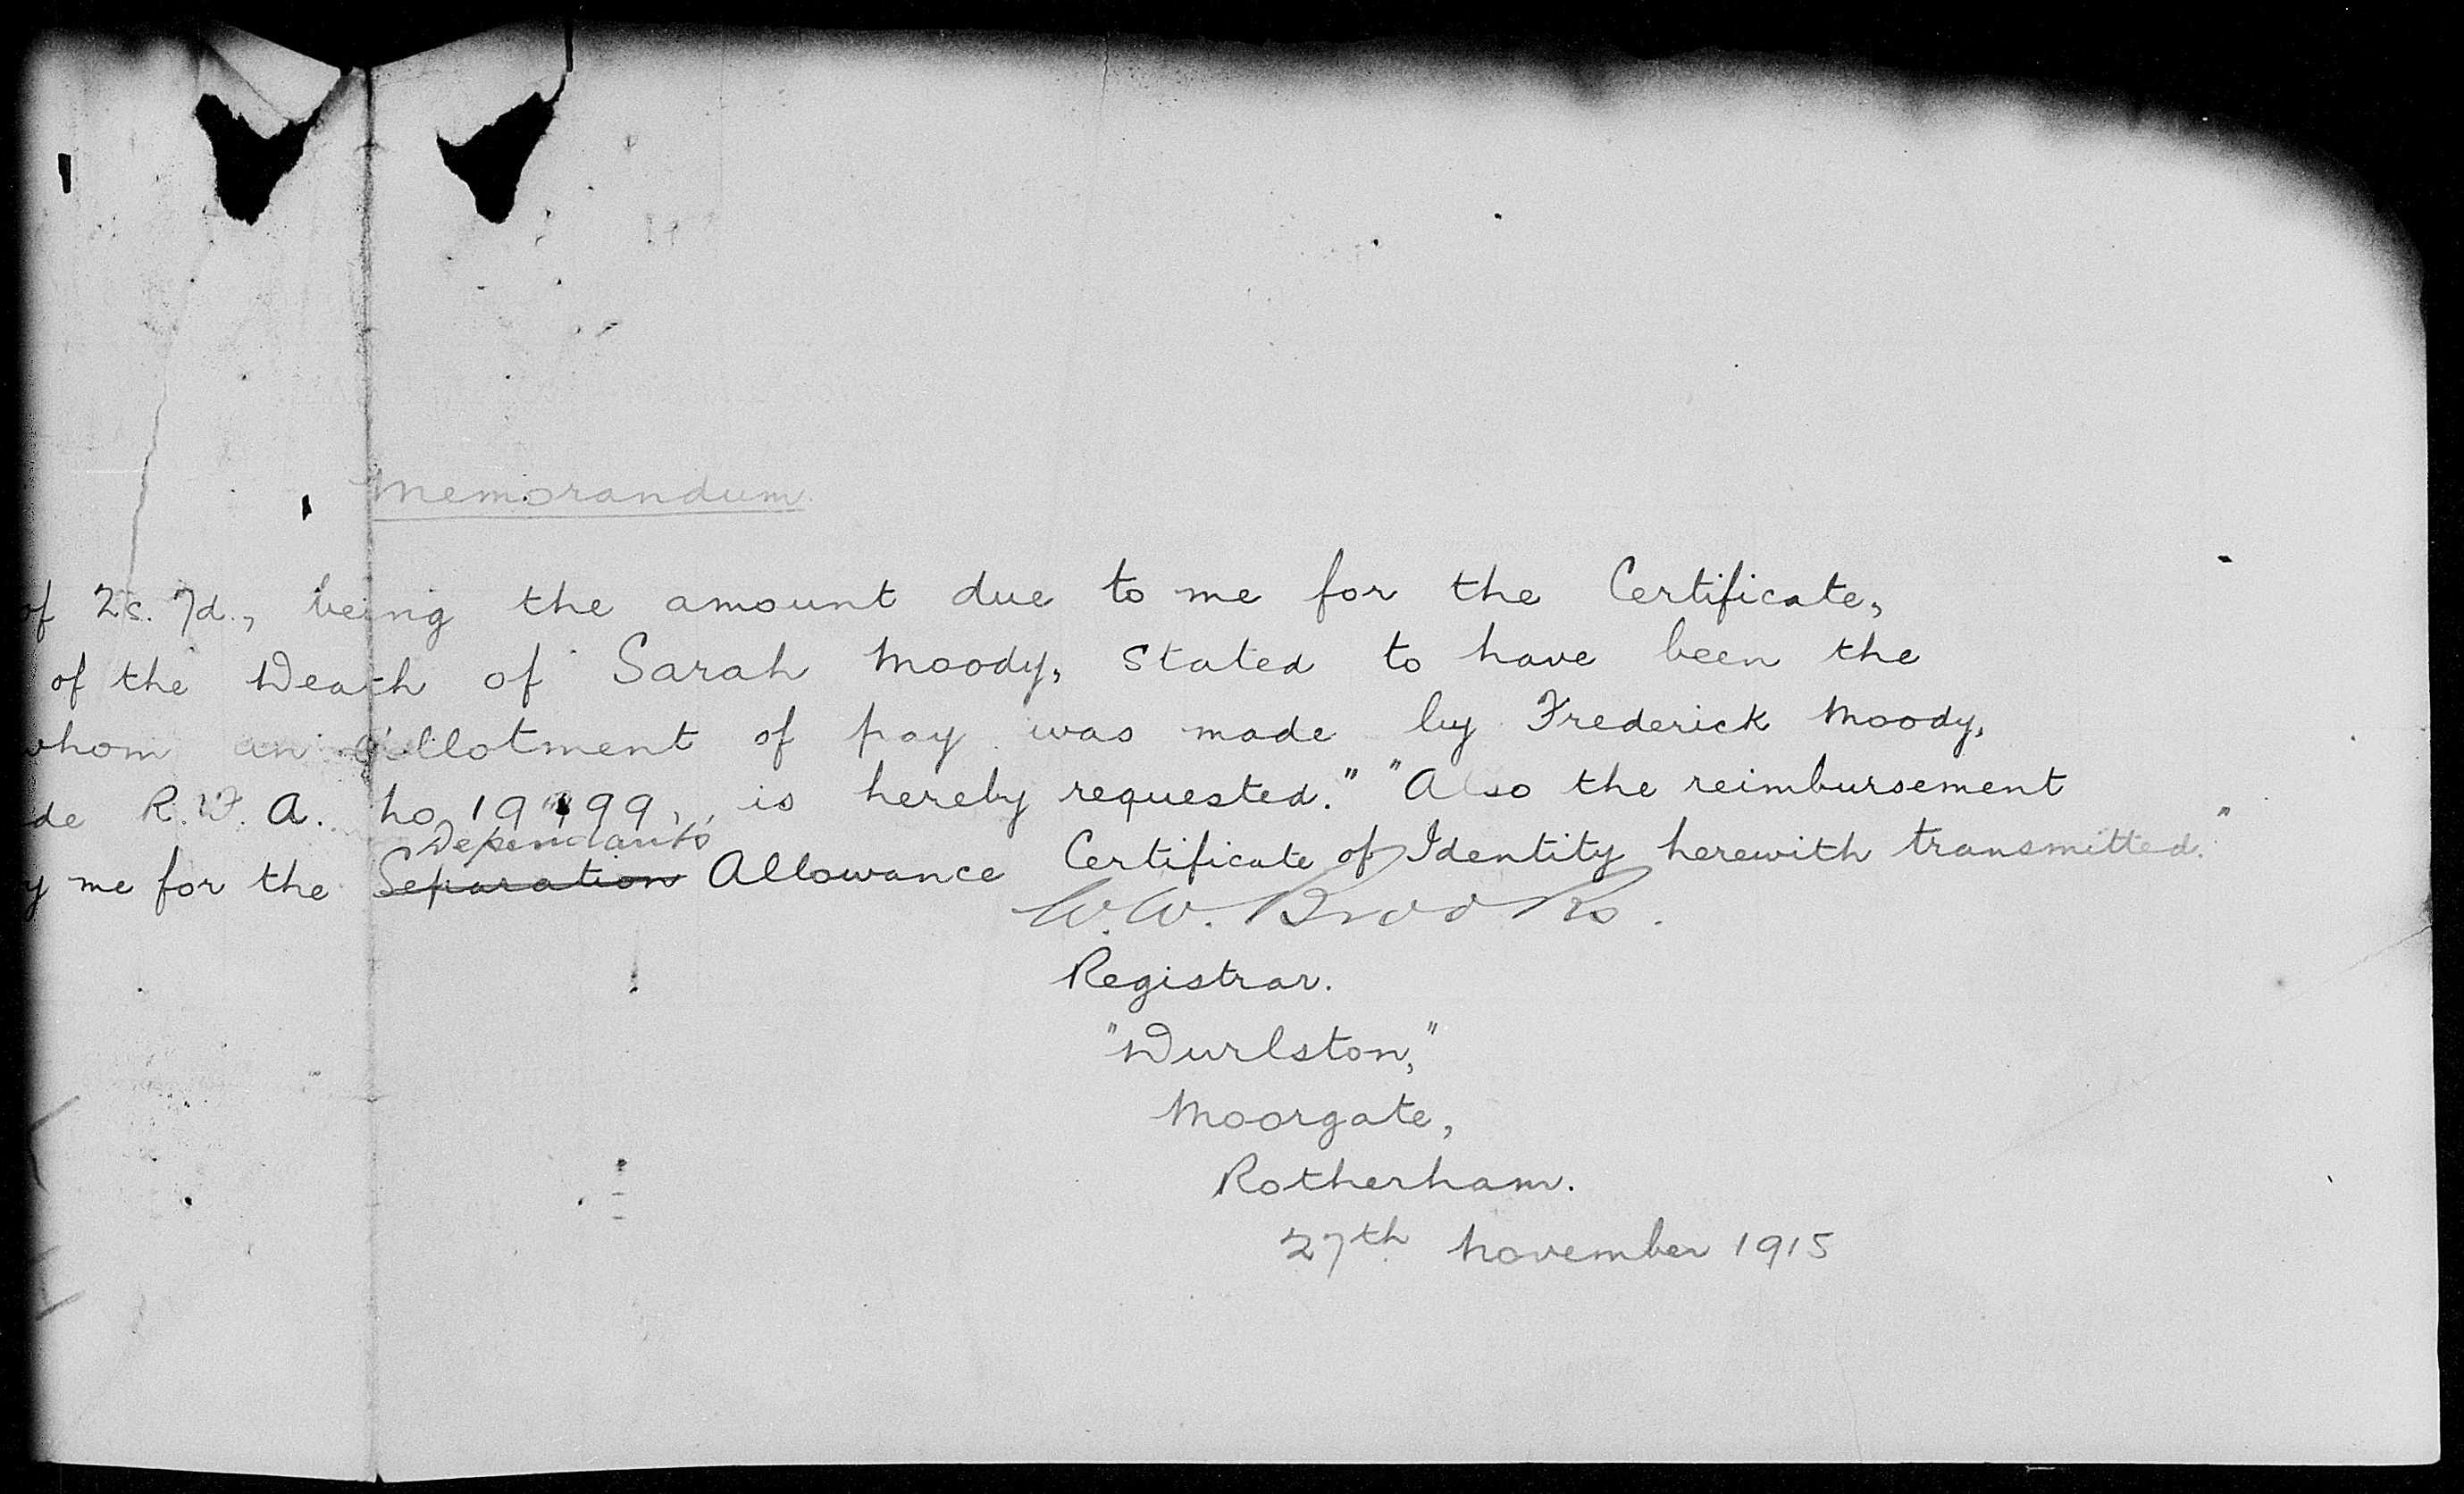 Memorandum.
of 2s. 7d., being the amount due to me for the Certificate,
of the Death of Sarah Moody, stated to have been the
whom an allotment of pay was made by Frederick Moody,
de R.F.A. No 19 99, is hereby requested." "Also the reimbursement
Dependants
y me for the Separation Allowance Certificate of Identity herewith transmitted."
W.W. Brooks.
Registrar.
"Durlston,"
Moorgate,
Rotherham.
27th November 1915